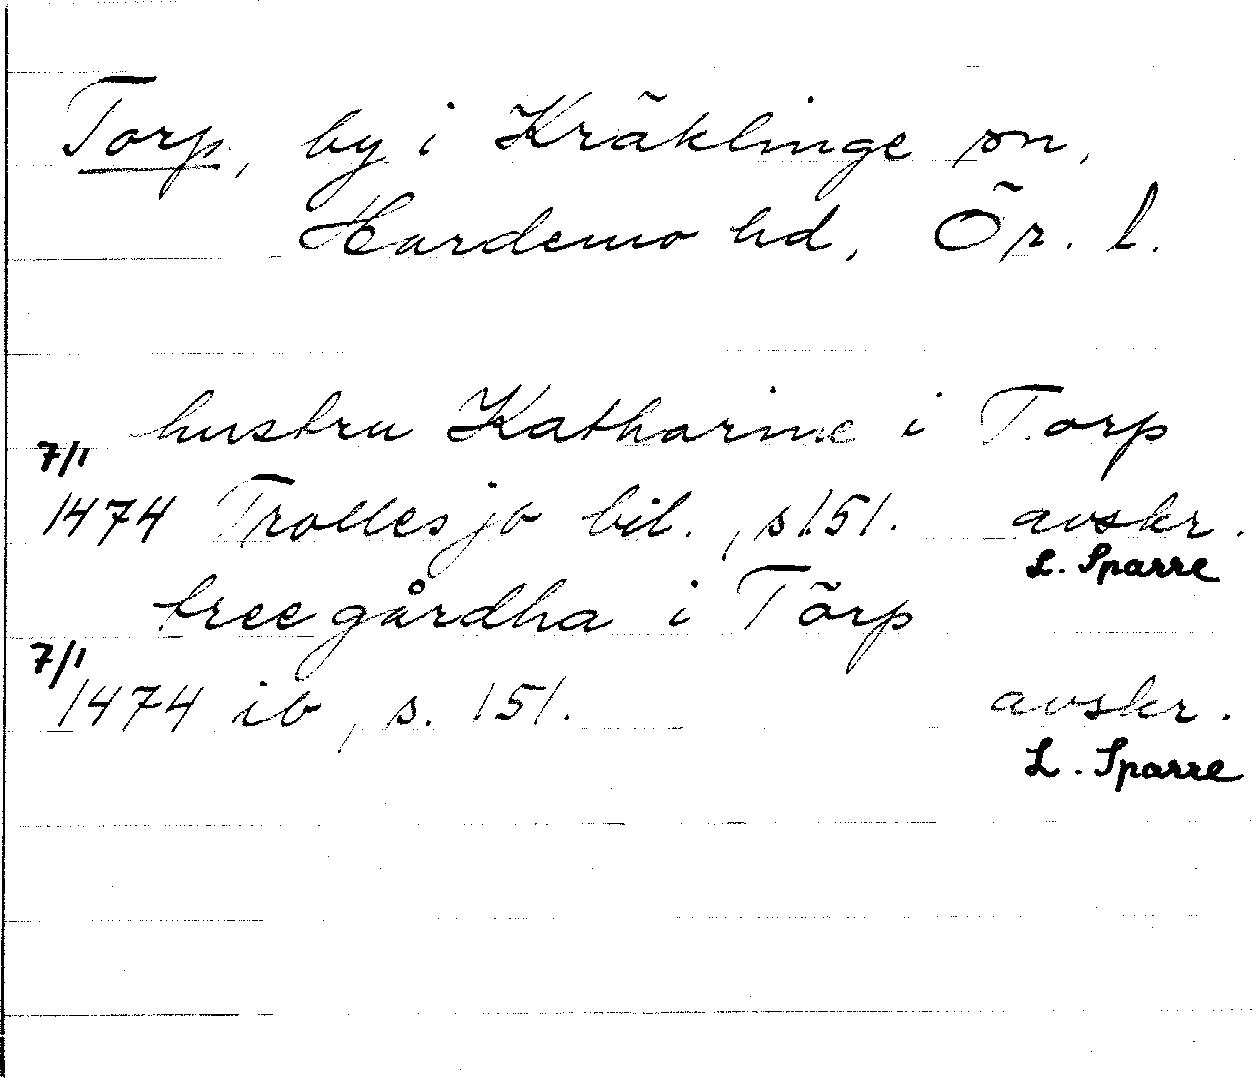 Torp, by i Kräklinge sn,
Hardemo hd, Ör. l.
hustru Katharine i Torp
7/1
1474 Trolles jb bil., s 151. avskr.
L. Sparre
tree gårdha i Törp
7/1
1474 ib, s. 151. avskr.
L. Sparre